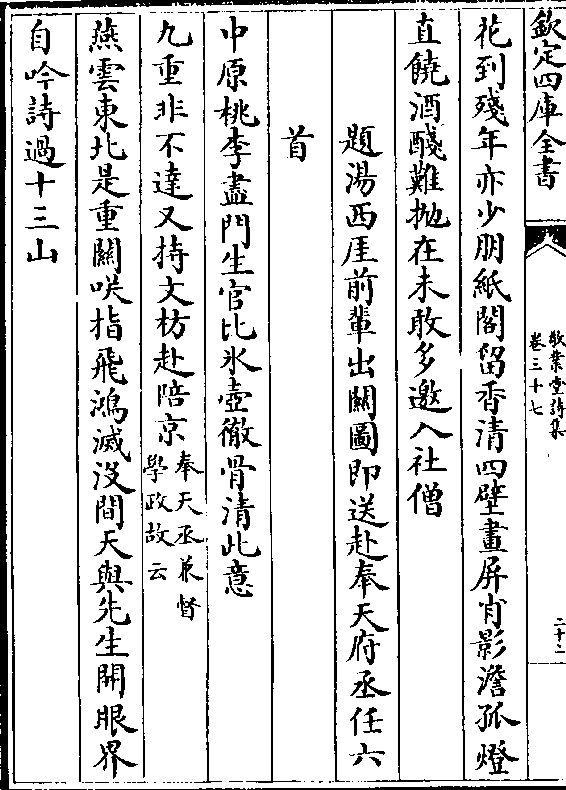 欽定四庫全書
敬業堂詩集
卷三十七
二十二
花到殘年亦少朋紙閣留香清四壁畫屏有影澹孤燈
直饒酒醆難抛在未敢多邀入社僧
題湯西厓前輩出關圖即送赴奉天府丞任六
首
中原桃李盡門生官比氷壺徹骨清此意
九重非不達又持文枋赴陪京奉天丞兼督
學政故云
燕雲東北是重關咲指飛鴻滅沒間天與先生開眼界
自吟詩過十三山